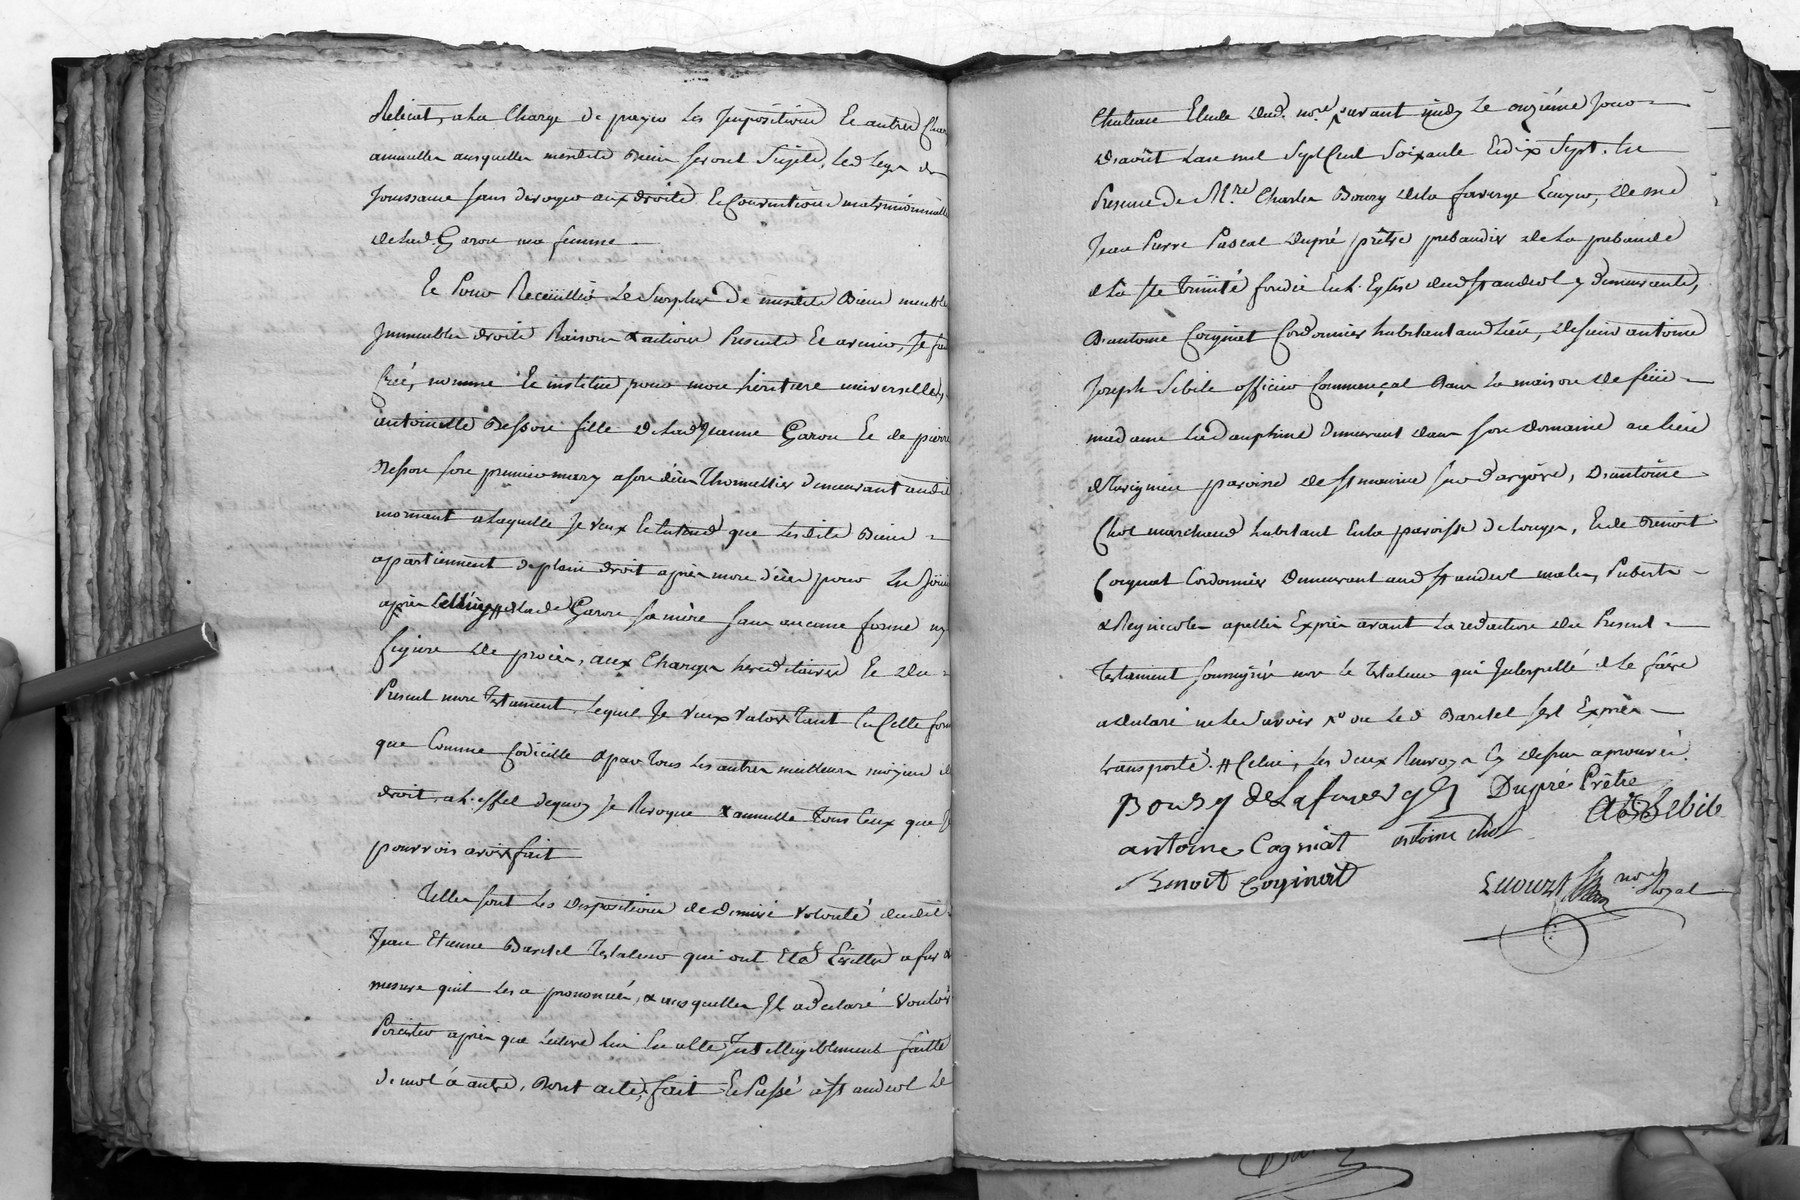 Relicat, a la Charge de payer les Impositions Et autres Char
annuelles ausquelles mesdits Biens seront Sujets, led legs de
Jouissance sans deroger aux droits Et Conventions matrimonialles
de lad. Garon ma femme
Et Pour Receüillir Le Surplus de mesdits Biens meubles
Immeubles droits Raisons & actions Presents Et avenir, Je fais
Créé, nomme Et institue pour mon héritiere universelle,
antoinette Besson fille de lad Jeanne Garon Et de pierre
Besson son premier mary a son décès Thonnellier demeurant audit
mornant a laquelle Je veux Et entend que lesdits Biens
apartiennent de plain droit après mon décès pour En Jöuir
après de lad Garon sa mère sans aucune forme ny
figure de procès, aux Charges hereditaires Et du
Present mon Testament, Lequel Je veux valoir tant En Cette forme
que Comme Codicille & par tous les autres meilleurs moyens de
droit, a l'effet dequoy Je Revoque & annulle Tous Ceux que Je
pourrois avoir fait
Telles sont les dispositions de derniere volonté dudit
Jean Etienne Baritel Testateur qui ont Eté Ecrittes a fur &
mesure quil les a prononcées, & ausquelles Il a declaré vouloir
Persister après que lecture lui En a été Intelligiblement faitte
de mot à autre, Dont acte, fait Et Passé a St andeol Le
Chateau Etude dud. nore. avant midy Le onzième Jour
d'août L'an mil Sept Cent Soixante Et dix Sept. En
Presence de Mre. Charles Boury de la faverge Ecuyer, de me
Jean Pierre Pascal dupré prêtre prebandier de La prebande
de la Ste Trinité fondée En L'Eglise dud St andeol y demeurante,
D'antoine Cognat Cordonnier habitant aud Lieu, de sieur antoine
Joseph Sibile officier Commençal Dans La maison de feüe
madame La Dauphine demeurant dans son domaine au lieu
de paroisse de St maurice sur d'argoire, d'antoine
Chol marchand habitant En la paroisse de Longes, Et de Benoit
Cognat Cordonnier demeurant aud St andeol males, Puberts
& Regnicoles apellés Exprès avant La redaction du Present
Testament soussignés non le Testateur qui Interpellé de le faire
a declaré ne Le Savoir où Led Baritel s'est Exprès
transporté. # Celui, les deux Renvoys Cy dessus aprouvés.
Boury de Lafaverge Dupré Prêtre
Sebile
antoine Cognat antoine Chol
Benoit Cognat
nore. Royal